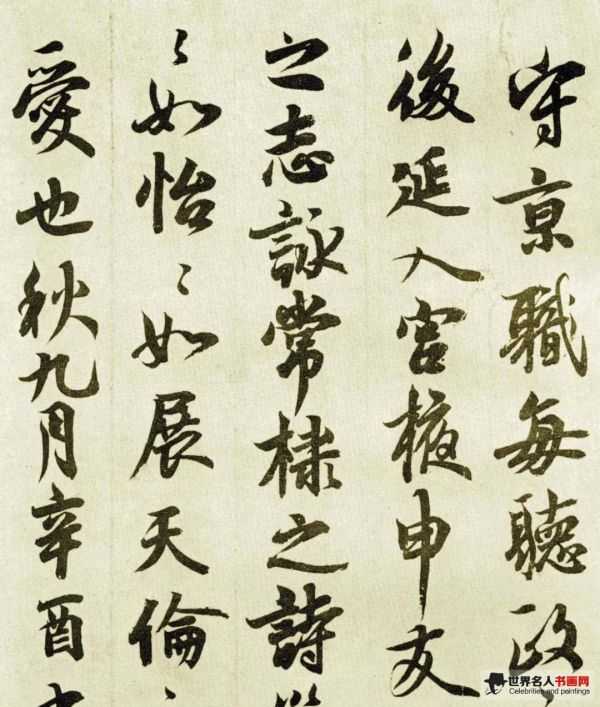 守京職每聽政
後延入宮掖申友
之志詠常棣之詩
〻如怡〻如展天倫
愛也秋九月辛酉
世界名人书画网
Celebrities and paintings